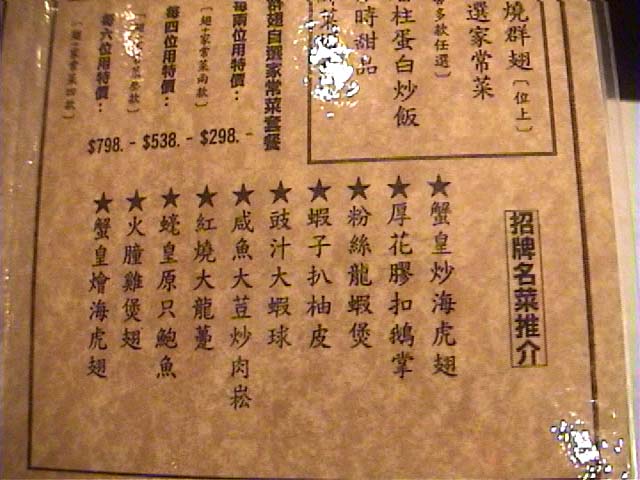 燒群翅〔位上〕
選家常菜
多款任選〕
柱蛋白炒飯
時甜品
群翅自選家常菜套餐
每兩位用特價：
$298.-
〔翅+家常菜兩款〕
每四位用特價：
$538.-
每六位用特價：
$798.-
〔翅+家常菜四款〕
招牌名菜推介
★蟹皇炒海虎翅
★厚花膠扣鵝掌
★粉絲龍蝦煲
★蝦子扒柚皮
★豉汁大蝦球
★咸魚大荳炒肉崧
★紅燒大龍躉
★蠔皇原只鮑魚
★火朣雞煲翅
★蟹皇燴海虎翅